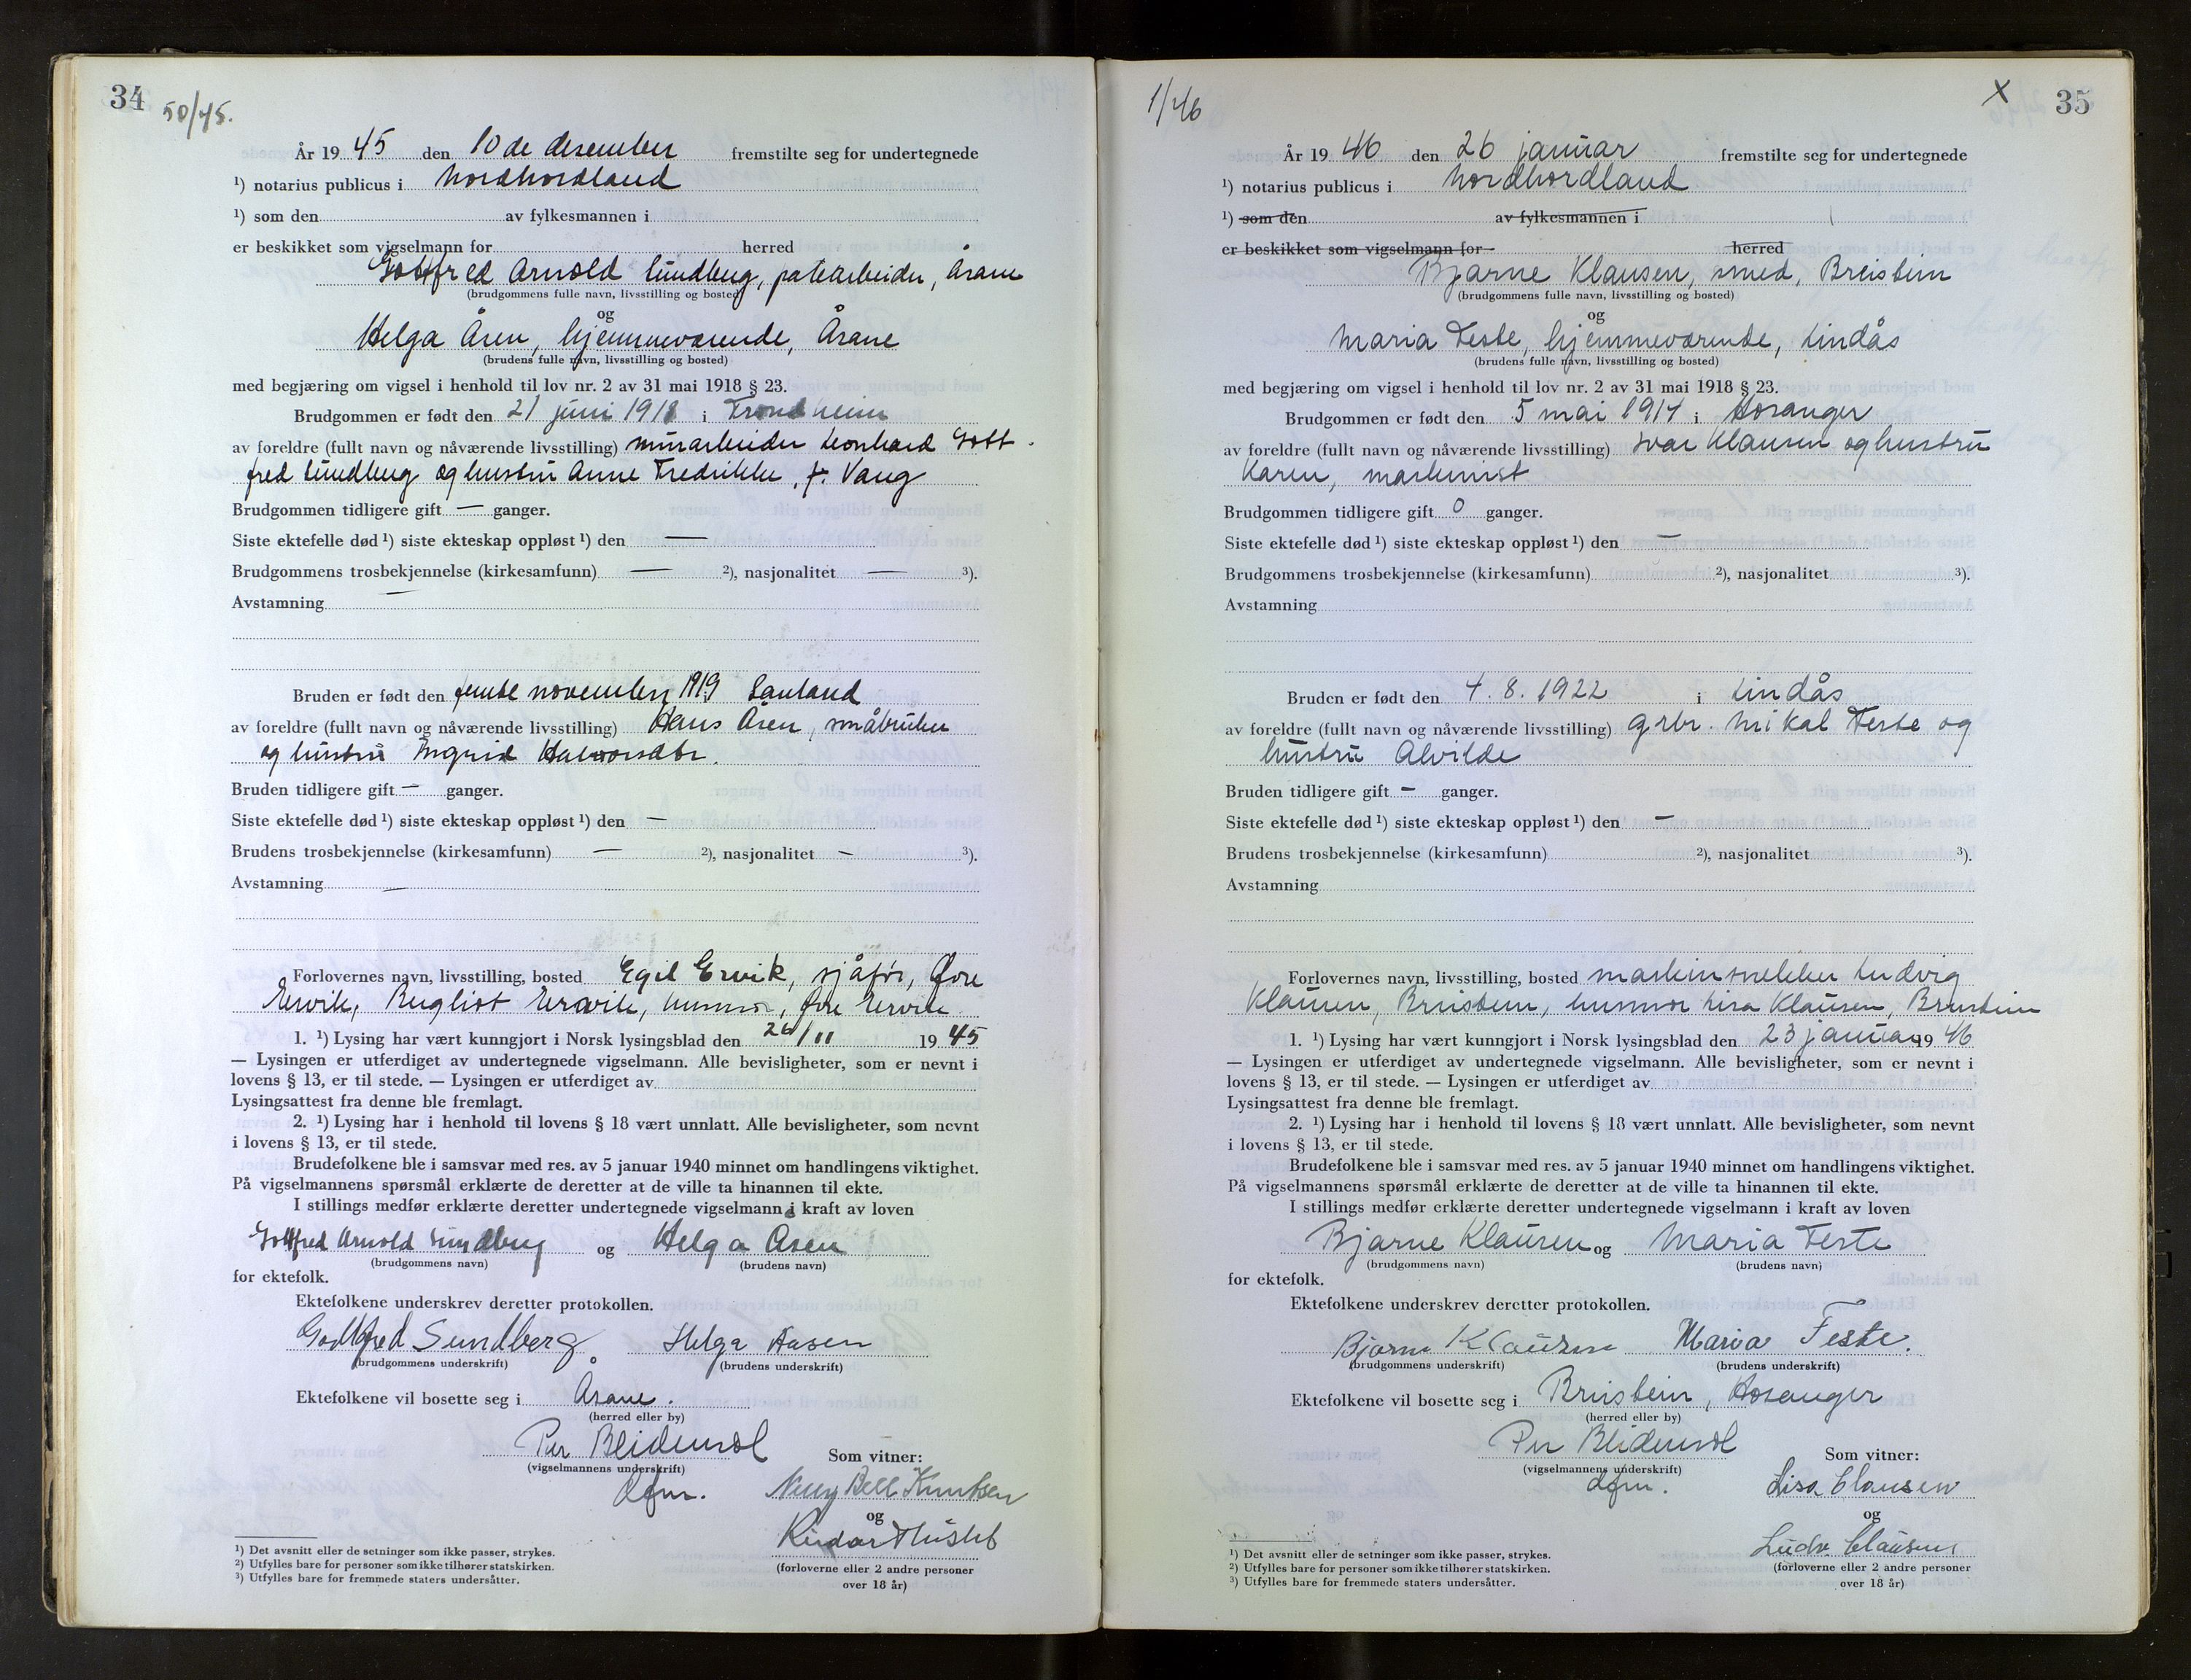 34
50/45.
År 19 45 den 10de desember fremstilte seg for undertegnede
¹) notarius publicus i Nordhordland
¹) som den av fylkesmannen i
er beskikket som vigselmann for herred
Gottfred Arnold Sundberg, Åsane
(brudgommens fulle navn, livsstilling og bosted)
og
Helga Åsen, hjemmeværende, Åsane
(brudens fulle navn, livsstilling og bosted)
med begjæring om vigsel i henhold til lov nr. 2 av 31 mai 1918 § 23.
Brudgommen er født den 21 juni 1918 i Trondheim
av foreldre (fullt navn og nåværende livsstilling) murarbeider Leonhard Gott
fred Sundberg og hustru Anne Fredrikke, f. Vang
Brudgommen tidligere gift — ganger.
Siste ektefelle død ¹) siste ekteskap oppløst ¹) den —
Brudgommens trosbekjennelse (kirkesamfunn) — ²), nasjonalitet — ³).
Avstamning —
Bruden er født den femte november 1919 Sauland
av foreldre (fullt navn og nåværende livsstilling) Hans Åsen, småbruker
og hustru Ingrid Halvorsdtr.
Bruden tidligere gift — ganger.
Siste ektefelle død ¹) siste ekteskap oppløst ¹) den —
Brudens trosbekjennelse (kirkesamfunn) — ²), nasjonalitet — ³).
Avstamning —
Forlovernes navn, livsstilling, bosted Egil Ervik, sjåfør, Øvre
Ervik, Ervik, husmor, Øvre Ervik
1. ¹) Lysing har vært kunngjort i Norsk lysingsblad den 26/11 19 45
— Lysingen er utferdiget av undertegnede vigselmann. Alle bevisligheter, som er nevnt i
lovens § 13, er til stede. — Lysingen er utferdiget av
Lysingsattest fra denne ble fremlagt.
2. ¹) Lysing har i henhold til lovens § 18 vært unnlatt. Alle bevisligheter, som nevnt
i lovens § 13, er til stede.
Brudefolkene ble i samsvar med res. av 5 januar 1940 minnet om handlingens viktighet.
På vigselmannens spørsmål erklærte de deretter at de ville ta hinannen til ekte.
I stillings medfør erklærte deretter undertegnede vigselmann i kraft av loven
Gottfred Arnold Sundberg og Helga Åsen
(brudgommens navn) (brudens navn)
for ektefolk.
Ektefolkene underskrev deretter protokollen.
Godtfred Sundberg Helga Aasen
(brudgommens underskrift) (brudens underskrift)
Ektefolkene vil bosette seg i Åsane.
(herred eller by)
Per Bleidensol Som vitner:
(vigselmannens underskrift)
dfm. Bell Knutsen
og
¹) Det avsnitt eller de setninger som ikke passer, strykes.
²) Utfylles bare for personer som ikke tilhører statskirken.
³) Utfylles bare for fremmede staters undersåtter.
(forloverne eller 2 andre personer
over 18 år)
1/46
X 35
År 19 46 den 26 januar fremstilte seg for undertegnede
¹) notarius publicus i Nordhordland
¹) som den av fylkesmannen i
er beskikket som vigselmann for herred
Bjarne Klausen, smed, Breistein
(brudgommens fulle navn, livsstilling og bosted)
og
Maria Feste, hjemmeværende, Lindås
(brudens fulle navn, livsstilling og bosted)
med begjæring om vigsel i henhold til lov nr. 2 av 31 mai 1918 § 23.
Brudgommen er født den 5 mai 1917 i Hosanger
av foreldre (fullt navn og nåværende livsstilling) Ivar Klausen og hustru
Karen, maskinist
Brudgommen tidligere gift 0 ganger.
Siste ektefelle død ¹) siste ekteskap oppløst ¹) den —
Brudgommens trosbekjennelse (kirkesamfunn) ²), nasjonalitet ³).
Avstamning
Bruden er født den 4. 8. 1922 i Lindås
av foreldre (fullt navn og nåværende livsstilling) grbr. Mikal Feste og
hustru Alvilde
Bruden tidligere gift — ganger.
Siste ektefelle død ¹) siste ekteskap oppløst ¹) den —
Brudens trosbekjennelse (kirkesamfunn) ²), nasjonalitet ³).
Avstamning
Forlovernes navn, livsstilling, bosted maskinsnekker Ludvig
Klausen, Breistein, husmor Lisa Klausen, Breistein
1. ¹) Lysing har vært kunngjort i Norsk lysingsblad den 23 januar 19 46
— Lysingen er utferdiget av undertegnede vigselmann. Alle bevisligheter, som er nevnt i
lovens § 13, er til stede. — Lysingen er utferdiget av
Lysingsattest fra denne ble fremlagt.
2. ¹) Lysing har i henhold til lovens § 18 vært unnlatt. Alle bevisligheter, som nevnt
i lovens § 13, er til stede.
Brudefolkene ble i samsvar med res. av 5 januar 1940 minnet om handlingens viktighet.
På vigselmannens spørsmål erklærte de deretter at de ville ta hinannen til ekte.
I stillings medfør erklærte deretter undertegnede vigselmann i kraft av loven
Bjarne Klausen og Maria Feste
(brudgommens navn) (brudens navn)
for ektefolk.
Ektefolkene underskrev deretter protokollen.
Bjarne Klausen Maria Feste.
(brudgommens underskrift) (brudens underskrift)
Ektefolkene vil bosette seg i Breistein, Hosanger
(herred eller by)
Per Bleidensol Som vitner:
(vigselmannens underskrift)
dfm. Lisa Clausen
og
Ludv Clausen
¹) Det avsnitt eller de setninger som ikke passer, strykes.
²) Utfylles bare for personer som ikke tilhører statskirken.
³) Utfylles bare for fremmede staters undersåtter.
(forloverne eller 2 andre personer
over 18 år)